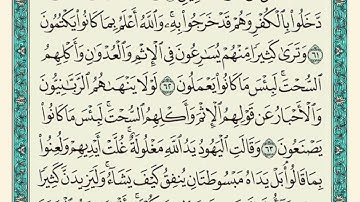 دَّخَلُوا۟ بِٱلْكُفْرِ وَهُمْ قَدْ خَرَجُوا۟ بِهِۦۚ وَٱللَّهُ أَعْلَمُ بِمَا كَانُوا۟ يَكْتُمُونَ
٦١ وَتَرَىٰ كَثِيرًا مِّنْهُمْ يُسَـٰرِعُونَ فِى ٱلْإِثْمِ وَٱلْعُدْوَٰنِ وَأَكْلِهِمُ
ٱلسُّحْتَۚ لَبِئْسَ مَا كَانُوا۟ يَعْمَلُونَ ٦٢ لَوْلَا يَنْهَىٰهُمُ ٱلرَّبَّـٰنِيُّونَ
وَٱلْأَحْبَارُ عَن قَوْلِهِمُ ٱلْإِثْمَ وَأَكْلِهِمُ ٱلسُّحْتَۚ لَبِئْسَ مَا كَانُوا۟
يَصْنَعُونَ ٦٣ وَقَالَتِ ٱلْيَهُودُ يَدُ ٱللَّهِ مَغْلُولَةٌۚ غُلَّتْ أَيْدِيهِمْ وَلُعِنُوا۟
بِمَا قَالُوا۟ۘ بَلْ يَدَاهُ مَبْسُوطَتَانِ يُنفِقُ كَيْفَ يَشَآءُۚ وَلَيَزِيدَنَّ كَثِيرًا